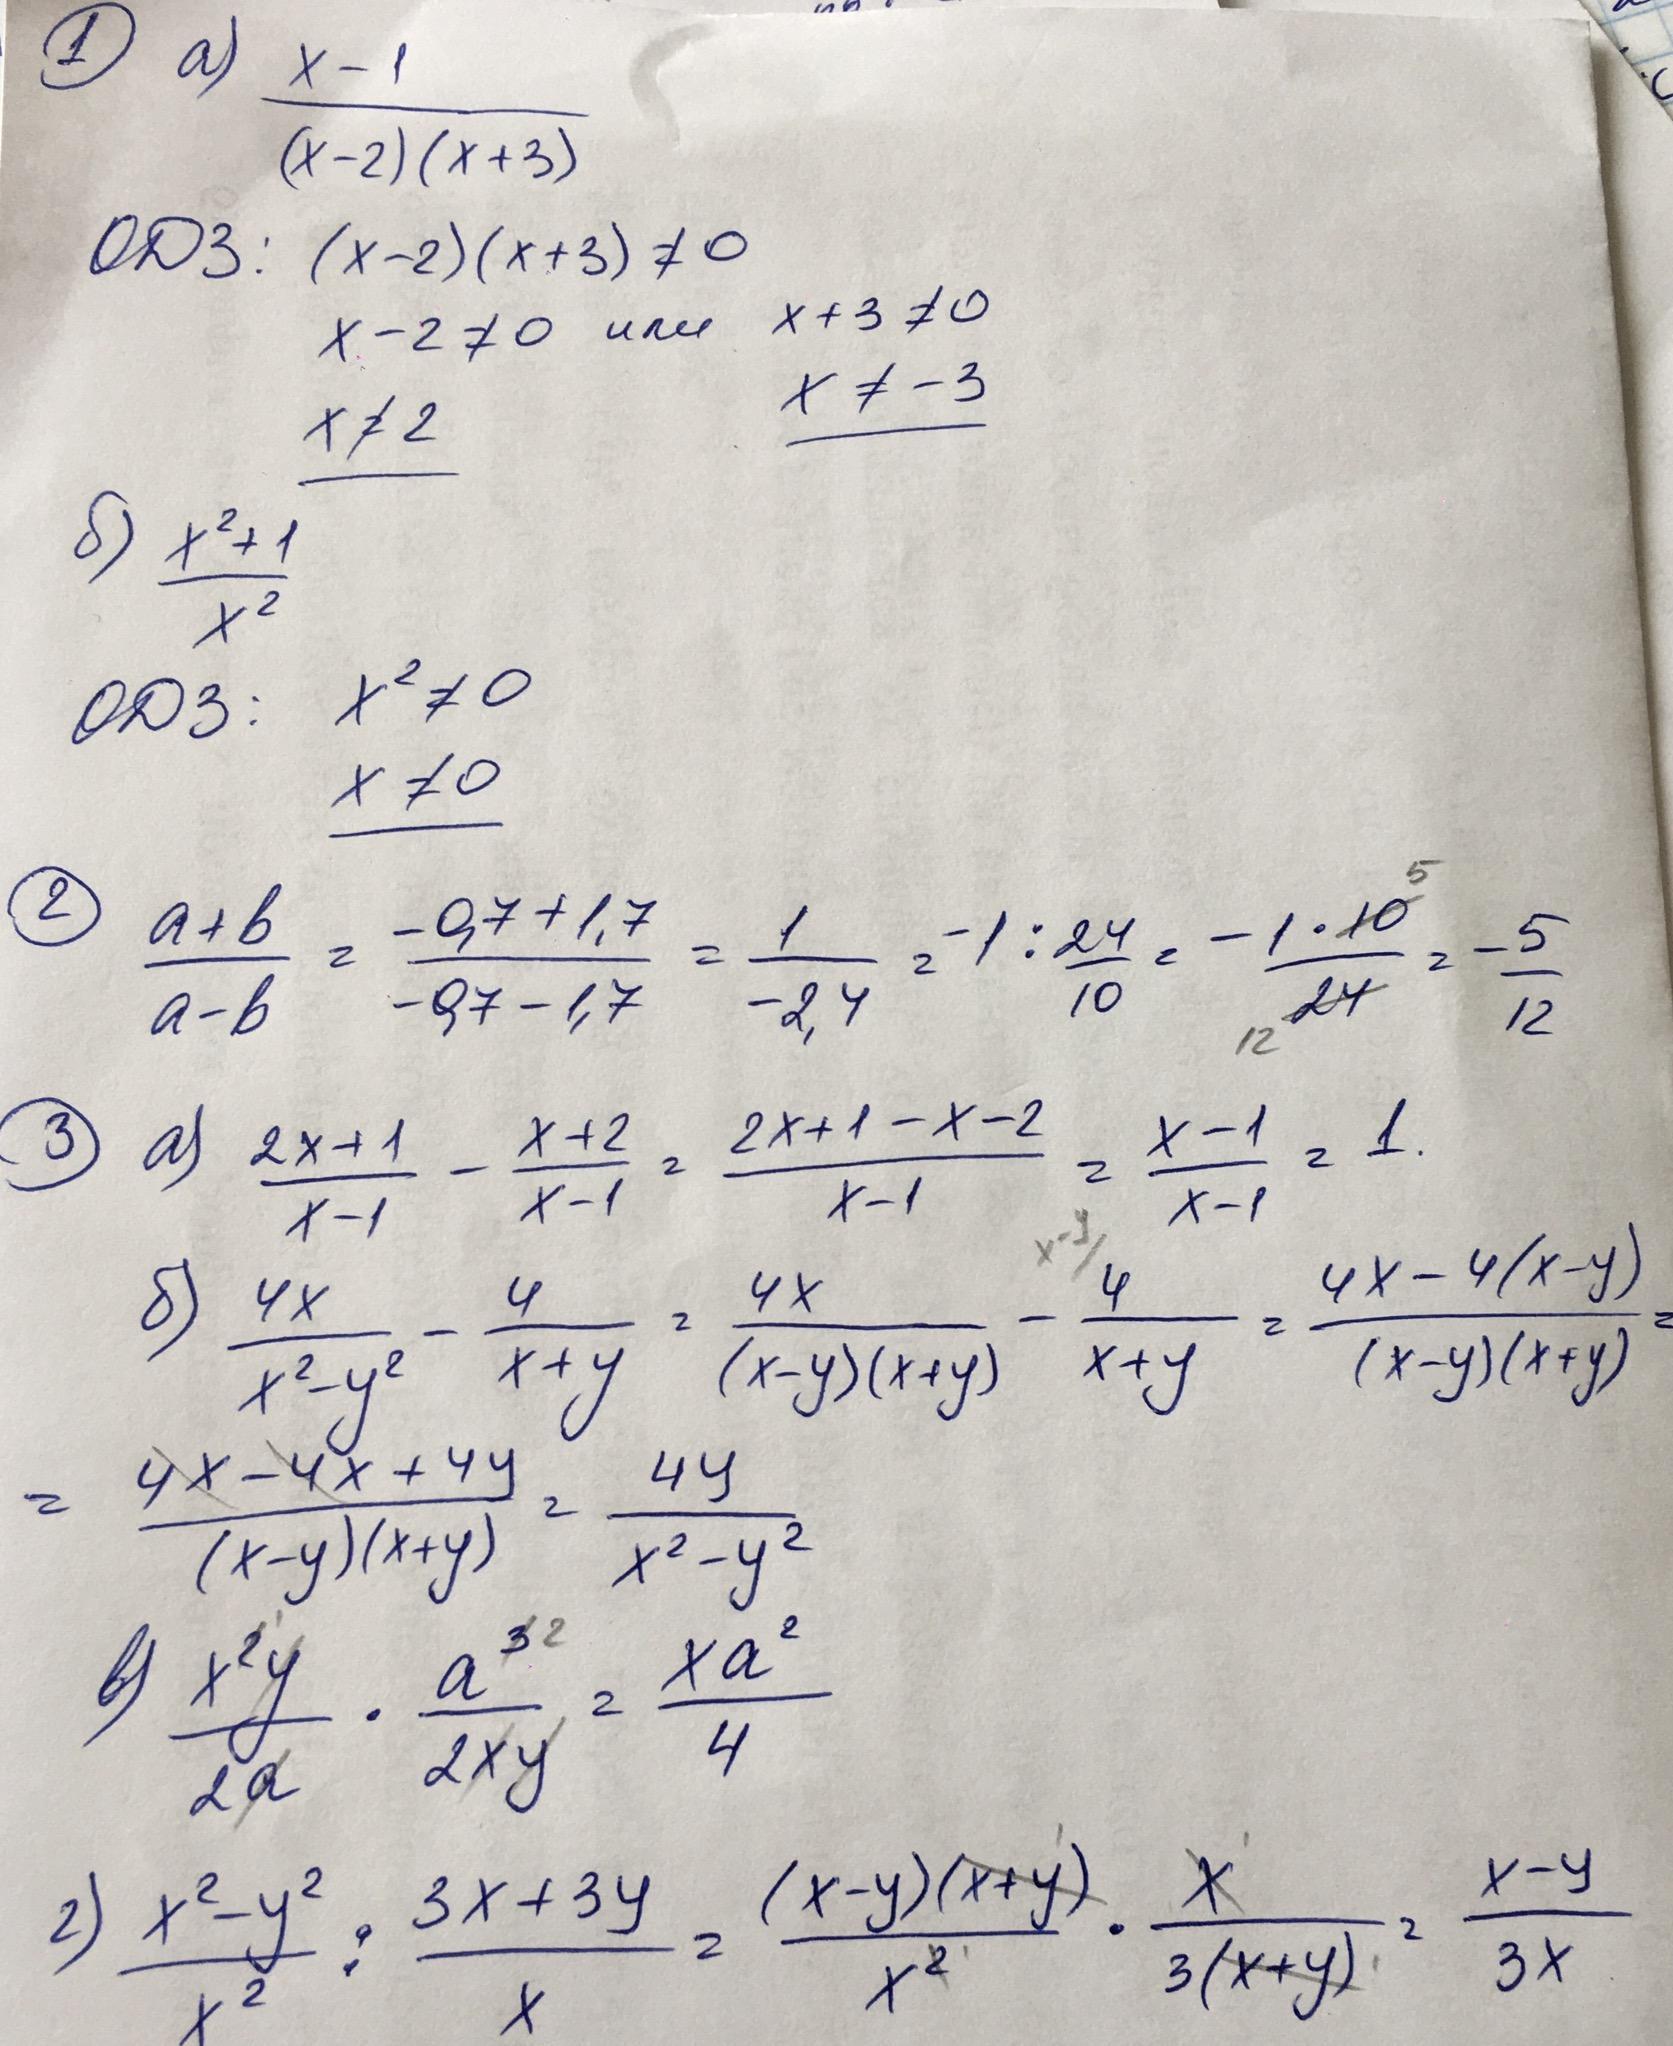 ① а) (x-1)/((x-2)(x+3))
ОДЗ: (x-2)(x+3)≠0
x-2≠0 или x+3≠0
x≠2 x≠-3
б) (x²+1)/x²
ОДЗ: x²≠0
x≠0
② (a+b)/(a-b) = (-0,7+1,7)/(-0,7-1,7) = 1/(-2,4) = -1 : 24/10 = -(1·10)/24 = -5/12
5
12
③ а) (2x+1)/(x-1) - (x+2)/(x-1) = (2x+1-x-2)/(x-1) = (x-1)/(x-1) = 1.
x-y/
б) 4x/(x²-y²) - 4/(x+y) = 4x/((x-y)(x+y)) - 4/(x+y) = (4x-4(x-y))/((x-y)(x+y)) =
= (4x-4x+4y)/((x-y)(x+y)) = 4y/(x²-y²)
в) x²y/2a · a³/2xy = xa²/4
1 2
г) (x²-y²)/x² : (3x+3y)/x = ((x-y)(x+y))/x² · x/(3(x+y)) = (x-y)/3x
1 1 1 1